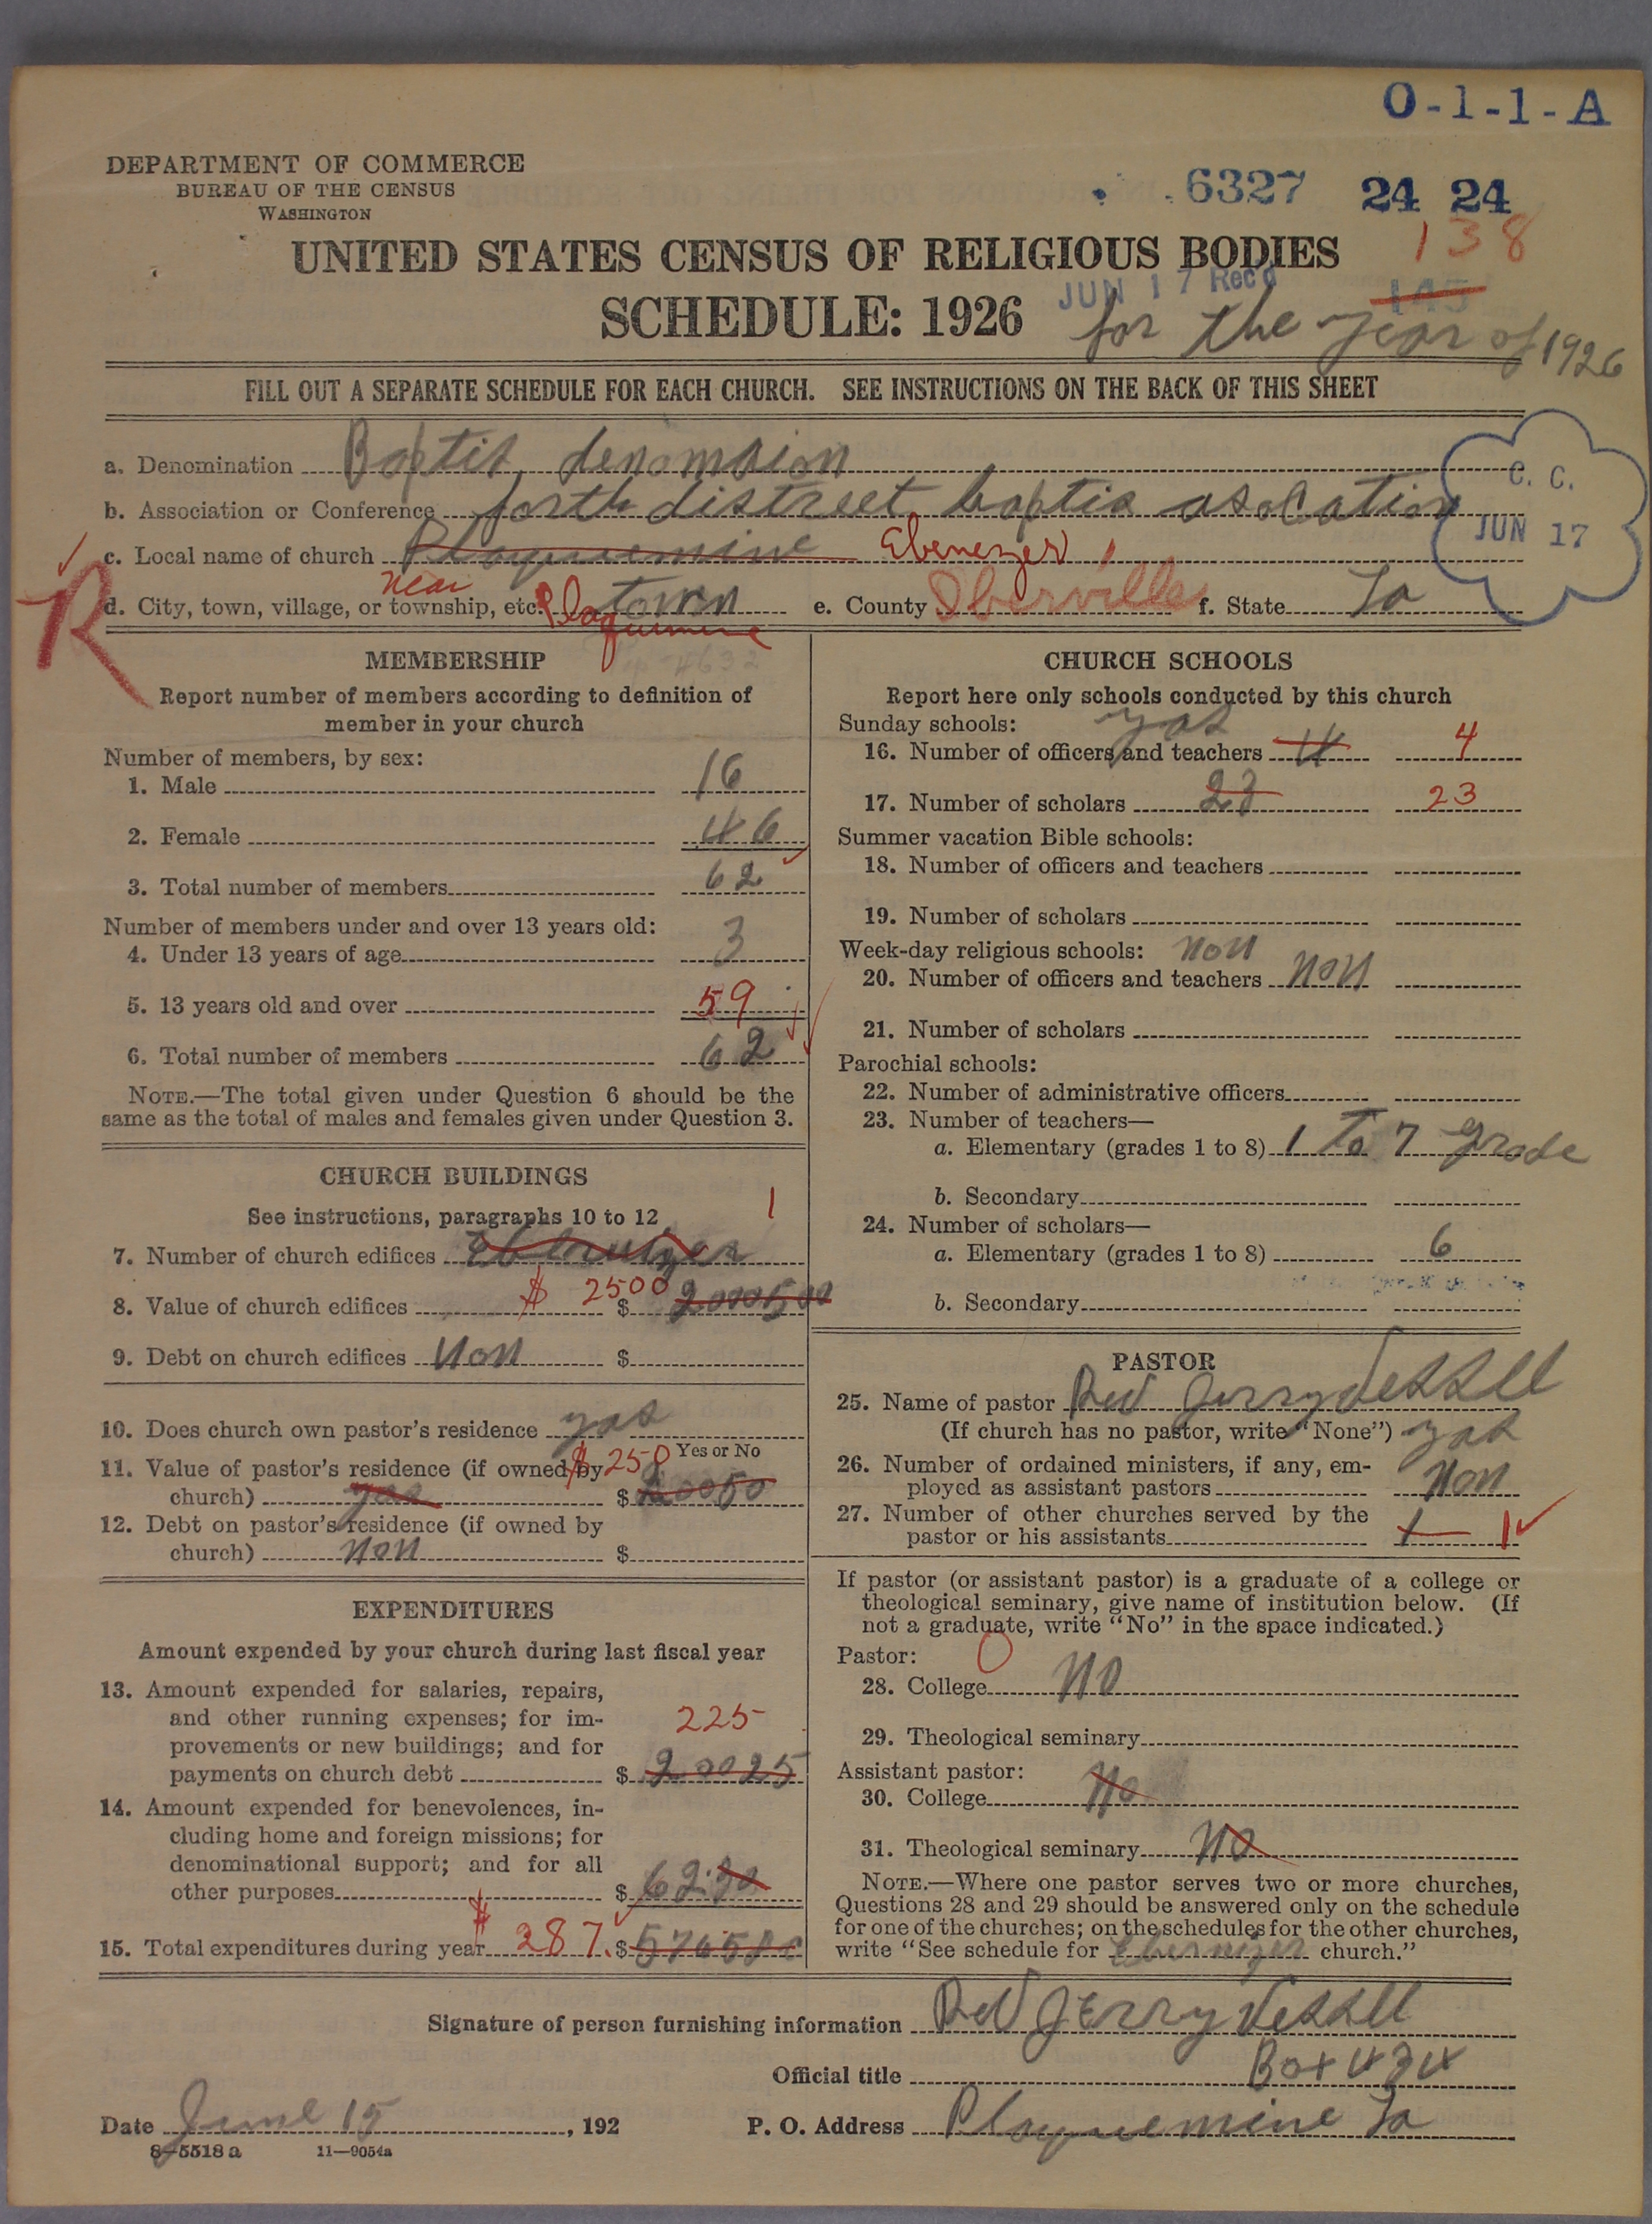 O-1-1-A
DEPARTMENT OF COMMERCE
BUREAU OF THE CENSUS
WASHINGTON
6327 24 24
138
UNITED STATES CENSUS OF RELIGIOUS BODIES
JUN 17 Rec'd 145
SCHEDULE: 1926 for the year of 1926
FILL OUT A SEPARATE SCHEDULE FOR EACH CHURCH. SEE INSTRUCTIONS ON THE BACK OF THIS SHEET
C. C.
JUN 17
a. Denomination Baptis denomsion
b. Association or Conference forth distreet baptis asocation
c. Local name of church Plaquemine Ebenezer
R
d. City, town, village, or township, etc. near Plaquemine town e. County Iberville f. State La
MEMBERSHIP
Report number of members according to definition of
member in your church
Number of members, by sex:
1. Male 16
2. Female 46
3. Total number of members 62
Number of members under and over 13 years old:
4. Under 13 years of age 3
5. 13 years old and over 59
6. Total number of members 62
NOTE.—The total given under Question 6 should be the
same as the total of males and females given under Question 3.
CHURCH BUILDINGS
See instructions, paragraphs 10 to 12
1
7. Number of church edifices
8. Value of church edifices $ 2500 $ 2000500
9. Debt on church edifices non $
10. Does church own pastor's residence yas
Yes or No
11. Value of pastor's residence (if owned by $ 250
church) yas $ 20050
12. Debt on pastor's residence (if owned by
church) non $
EXPENDITURES
Amount expended by your church during last fiscal year
13. Amount expended for salaries, repairs,
and other running expenses; for im-
225
provements or new buildings; and for
payments on church debt $ 20025
14. Amount expended for benevolences, in-
cluding home and foreign missions; for
denominational support; and for all
other purposes $ 62.30
15. Total expenditures during year $ 287. $
CHURCH SCHOOLS
Report here only schools conducted by this church
Sunday schools: yas
16. Number of officers and teachers 4 4
17. Number of scholars 23 23
Summer vacation Bible schools:
18. Number of officers and teachers
19. Number of scholars
Week-day religious schools: non
20. Number of officers and teachers non
21. Number of scholars
Parochial schools:
22. Number of administrative officers
23. Number of teachers—
a. Elementary (grades 1 to 8) 1 To 7 grade
b. Secondary
24. Number of scholars—
a. Elementary (grades 1 to 8) 6
b. Secondary
PASTOR
25. Name of pastor Rev Jerry Vessell
(If church has no pastor, write "None") yas
26. Number of ordained ministers, if any, em-
ployed as assistant pastors non
27. Number of other churches served by the
pastor or his assistants 1 1
If pastor (or assistant pastor) is a graduate of a college or
theological seminary, give name of institution below. (If
not a graduate, write "No" in the space indicated.)
Pastor: 0
28. College No
29. Theological seminary
Assistant pastor:
30. College No
31. Theological seminary No
NOTE.—Where one pastor serves two or more churches,
Questions 28 and 29 should be answered only on the schedule
for one of the churches; on the schedules for the other churches,
write "See schedule for Ebernezer church."
Signature of person furnishing information Rev Jerry Vessell
Official title Box 434
Date June 15, 192 P. O. Address Plaquemine La
8—5518 a 11—9054a